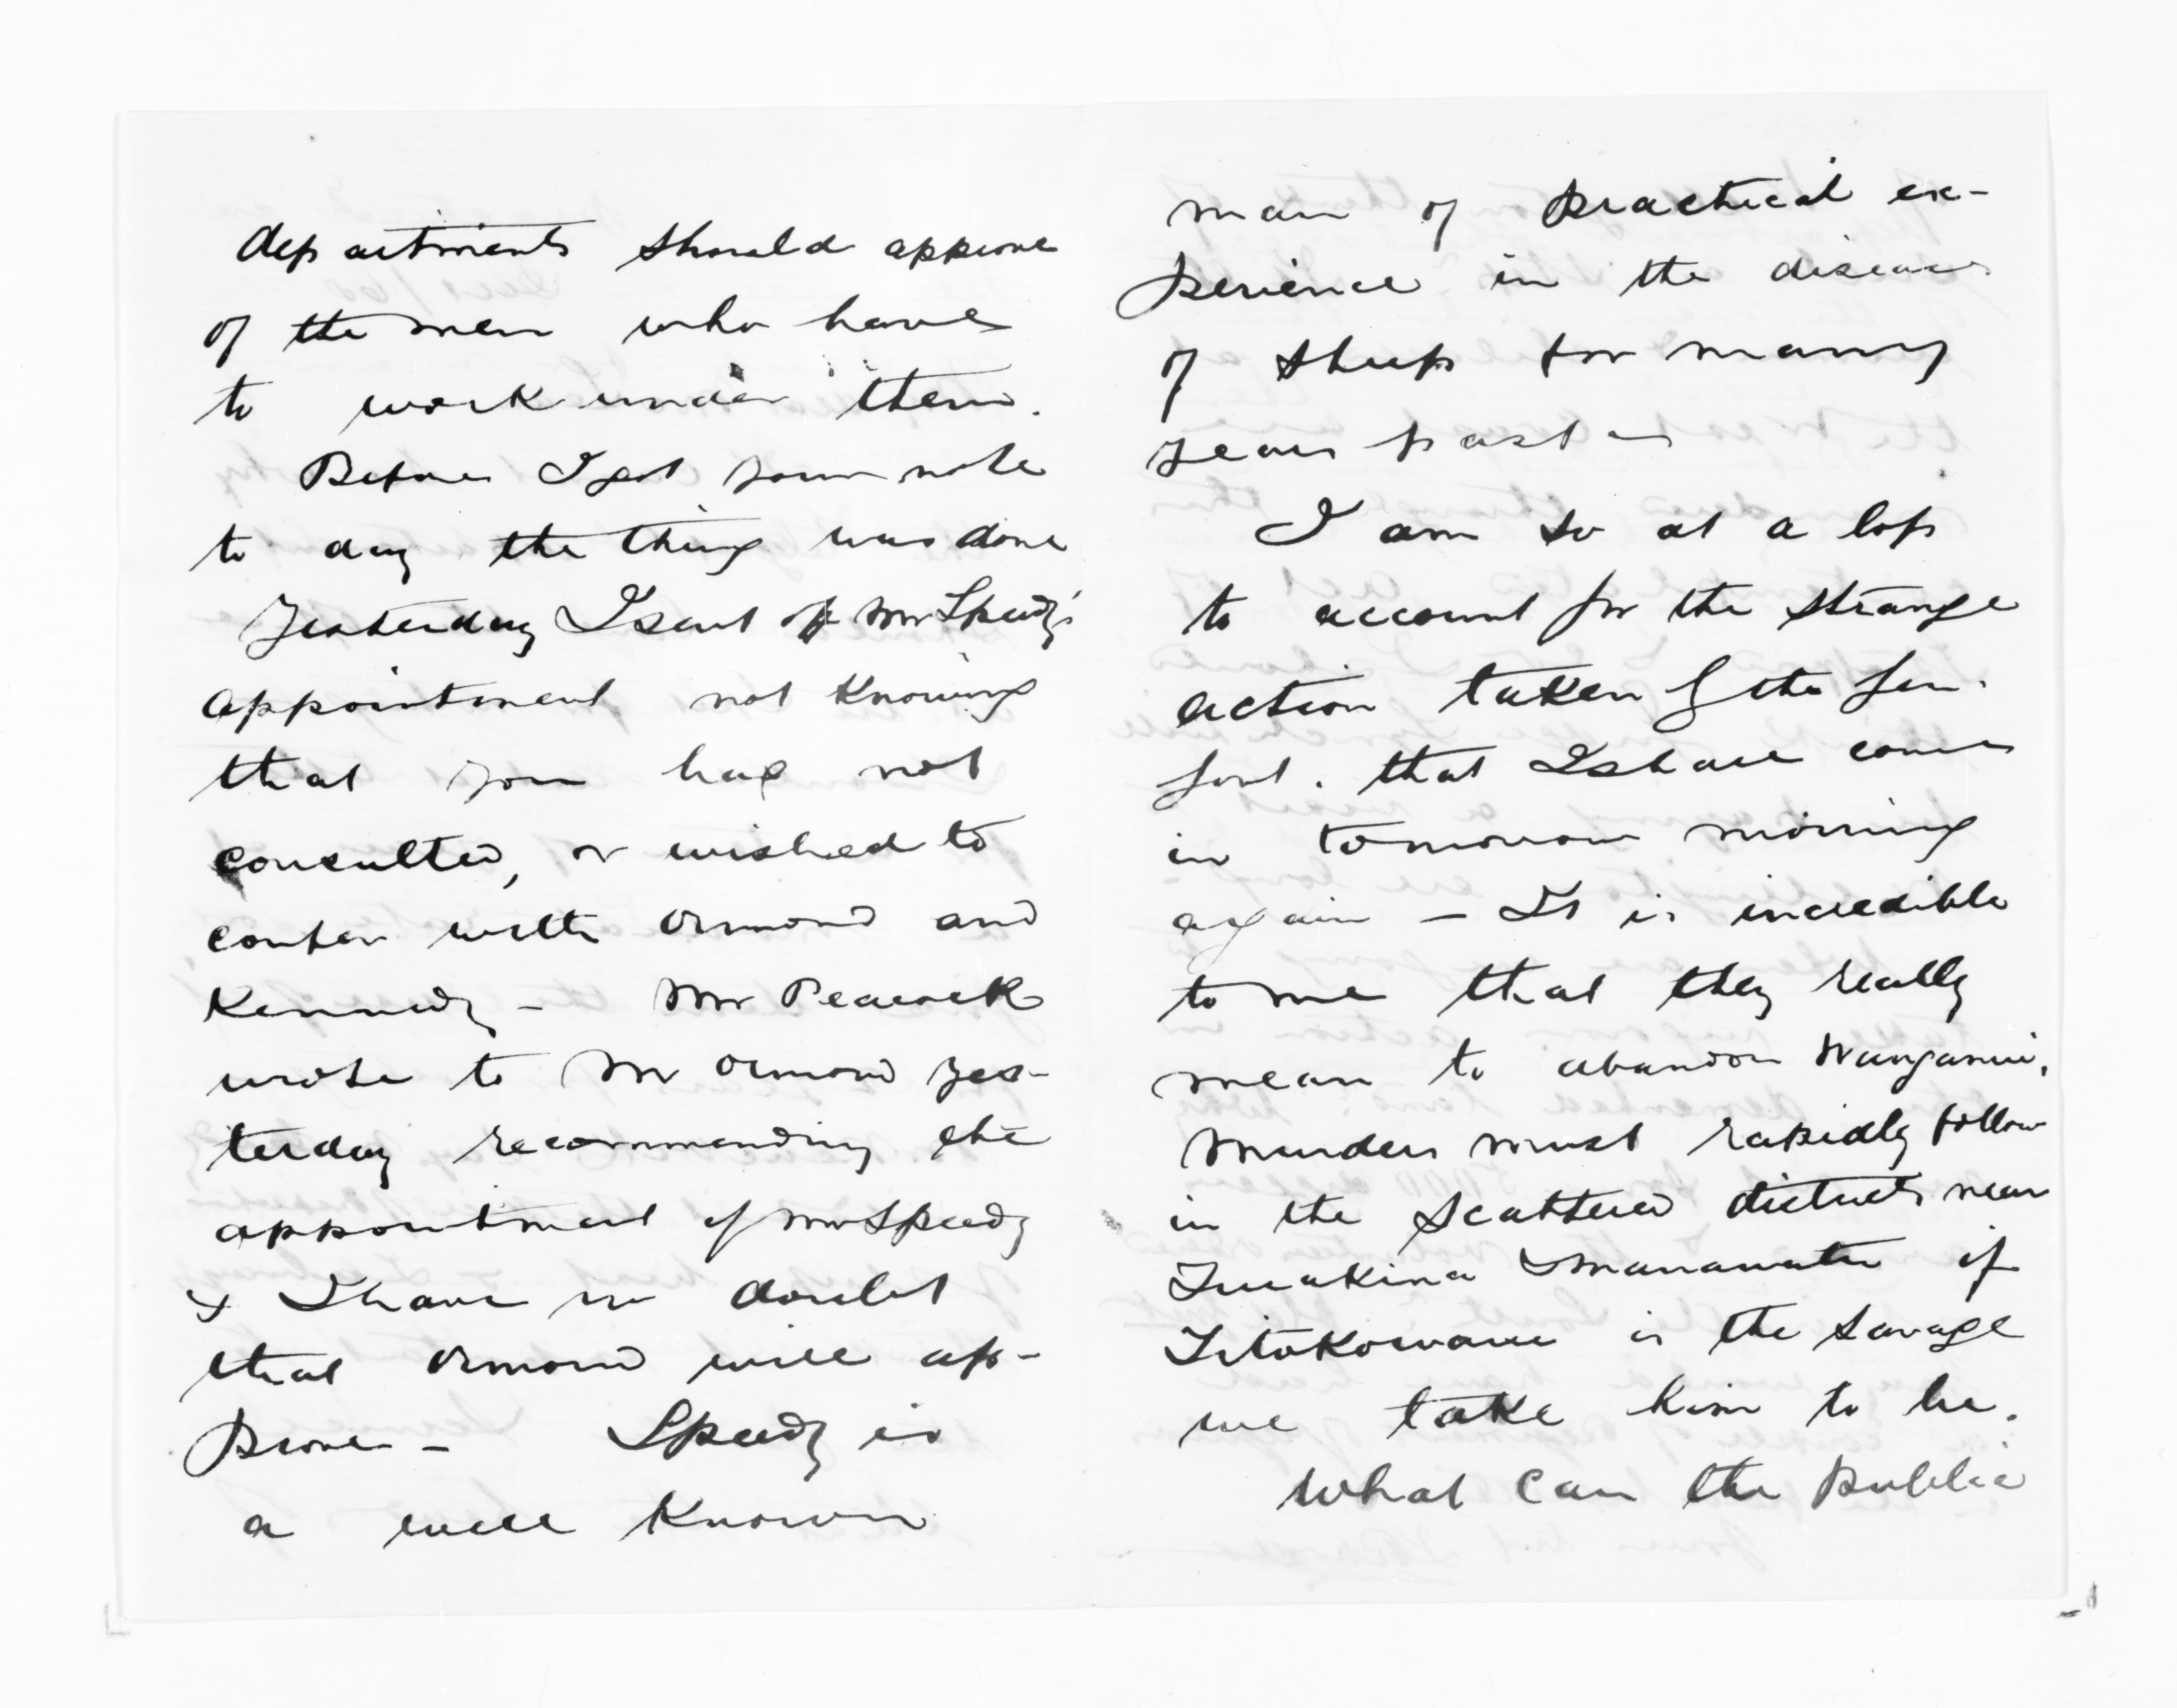 departments should approve
of the men who have
to work under them.
Before I got your note
to day the thing was done
Yesterday I sent off Mr Speedy's
appointment not knowing
that you had not
consulted, or wished to
confer with Ormond and
Kennedy - Mr Peacock
wrote to Mr Ormond yes-
terday recommending the
appointment of Mr Speedy
& I have no doubt
that Ormond will ap-
prove - Speedy is
a well known
man of practical ex-
perience in the diseases
of sheep for many
years past -
I am so at a loss
to account for the strange
action taken by the Gen.
Govt. that I shall come
in tomorrow morning
again - It is incredible
to me that they really
mean to abandon Wanganui,
Murders must rapidly follow
in the scattered districts near
Turakina & Manawatu if
Titokowaru is the savage
we take him to be.
What can the public